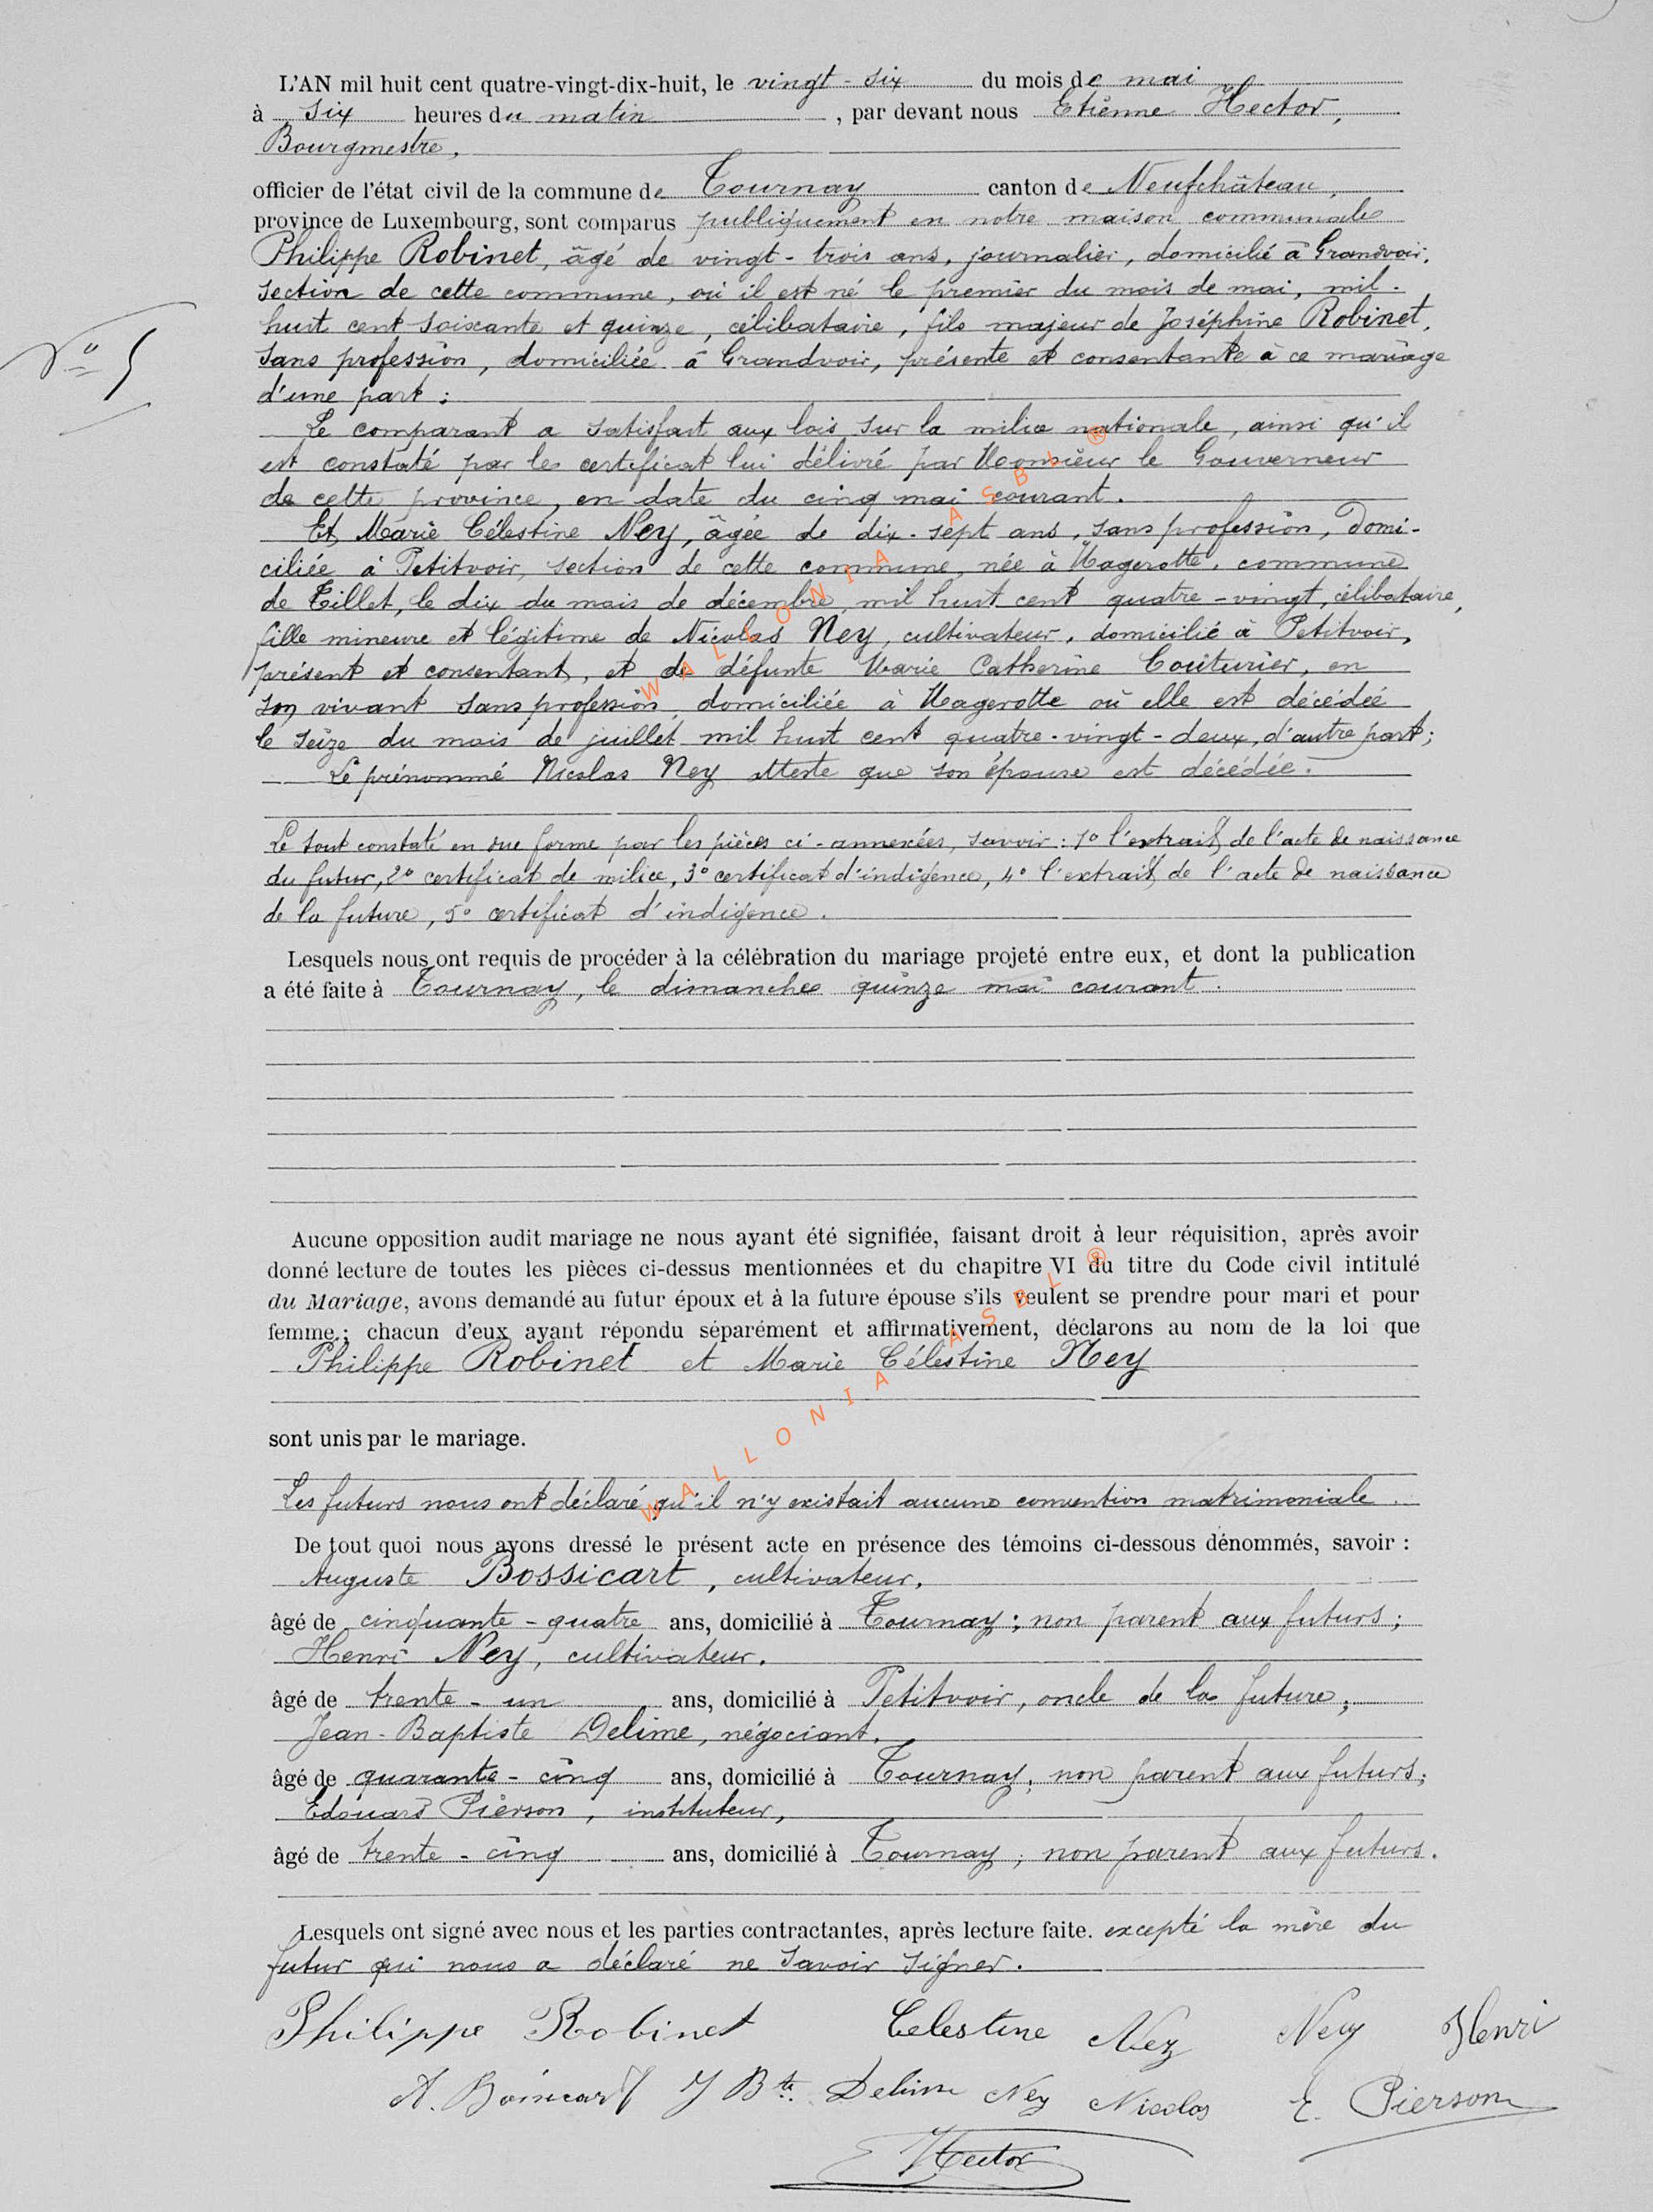 L'AN mil huit cent quatre-vingt-dix-huit, le vingt-six du mois de mai
à six heures du matin, par devant nous Etienne Hector,
Bourgmestre,
officier de l'état civil de la commune de Tournay canton de Neufchâteau,
province de Luxembourg, sont comparus publiquement en notre maison communale
Philippe Robinet, âgé de vingt-trois ans, journalier, domicilié à Grandvoir,
section de cette commune, où il est né le premier du mois de mai, mil-
huit cent soixante et quinze, célibataire, fils majeur de Joséphine Robinet,
N° 5
sans profession, domiciliée à Grandvoir, présente et consentante à ce mariage
d'une part;
Le comparant a satisfait aux lois sur la milice nationale, ainsi qu'il
est constaté par le certificat lui délivré par Monsieur le Gouverneur
de cette province, en date du cinq mai courant.
Et Marie Célestine Ney, âgée de dix-sept ans, sans profession, domi-
ciliée à Petitvoir, section de cette commune, née à Magerotte, commune
de Tillet, le dix du mois de décembre, mil huit cent quatre-vingt, célibataire,
fille mineure et légitime de Nicolas Ney, cultivateur, domicilié à Petitvoir,
présent et consentant, et de défunte Marie Catherine Couturier, en
son vivant sans profession, domiciliée à Magerotte où elle est décédée
le seize du mois de juillet mil huit cent quatre-vingt-deux, d'autre part;
Le prénommé Nicolas Ney atteste que son épouse est décédée.
Le tout constaté en due forme par les pièces ci-annexées, savoir: 1° l'extrait de l'acte de naissance
du futur, 2° certificat de milice, 3° certificat d'indigence, 4° l'extrait de l'acte de naissance
de la future, 5° certificat d'indigence.
Lesquels nous ont requis de procéder à la célébration du mariage projeté entre eux, et dont la publication
a été faite à Tournay, le dimanche quinze mai courant.
Aucune opposition audit mariage ne nous ayant été signifiée, faisant droit à leur réquisition, après avoir
donné lecture de toutes les pièces ci-dessus mentionnées et du chapitre VI du titre du Code civil intitulé
du Mariage, avons demandé au futur époux et à la future épouse s'ils veulent se prendre pour mari et pour
femme; chacun d'eux ayant répondu séparément et affirmativement, déclarons au nom de la loi que
Philippe Robinet et Marie Célestine Ney
sont unis par le mariage.
Les futurs nous ont déclaré qu'il n'y existait aucune convention matrimoniale.
De tout quoi nous avons dressé le présent acte en présence des témoins ci-dessous dénommés, savoir :
Auguste Bossicart, cultivateur,
âgé de cinquante-quatre ans, domicilié à Tournay; non parent aux futurs;
Henri Ney, cultivateur,
âgé de trente-un ans, domicilié à Petitvoir, oncle de la future;
Jean-Baptiste Delime, négociant,
âgé de quarante-cinq ans, domicilié à Tournay, non parent aux futurs;
Edouard Pierson, instituteur,
âgé de trente-cinq ans, domicilié à Tournay; non parent aux futurs.
Lesquels ont signé avec nous et les parties contractantes, après lecture faite. excepté la mère du
futur qui nous a déclaré ne savoir signer.
Philippe Robinet Celestine Ney Ney Henri
A. Bossicart J Bte. Delime Ney Nicolas E. Pierson
Hector
WALLONIA ASBL ®
WALLONIA ASBL ®